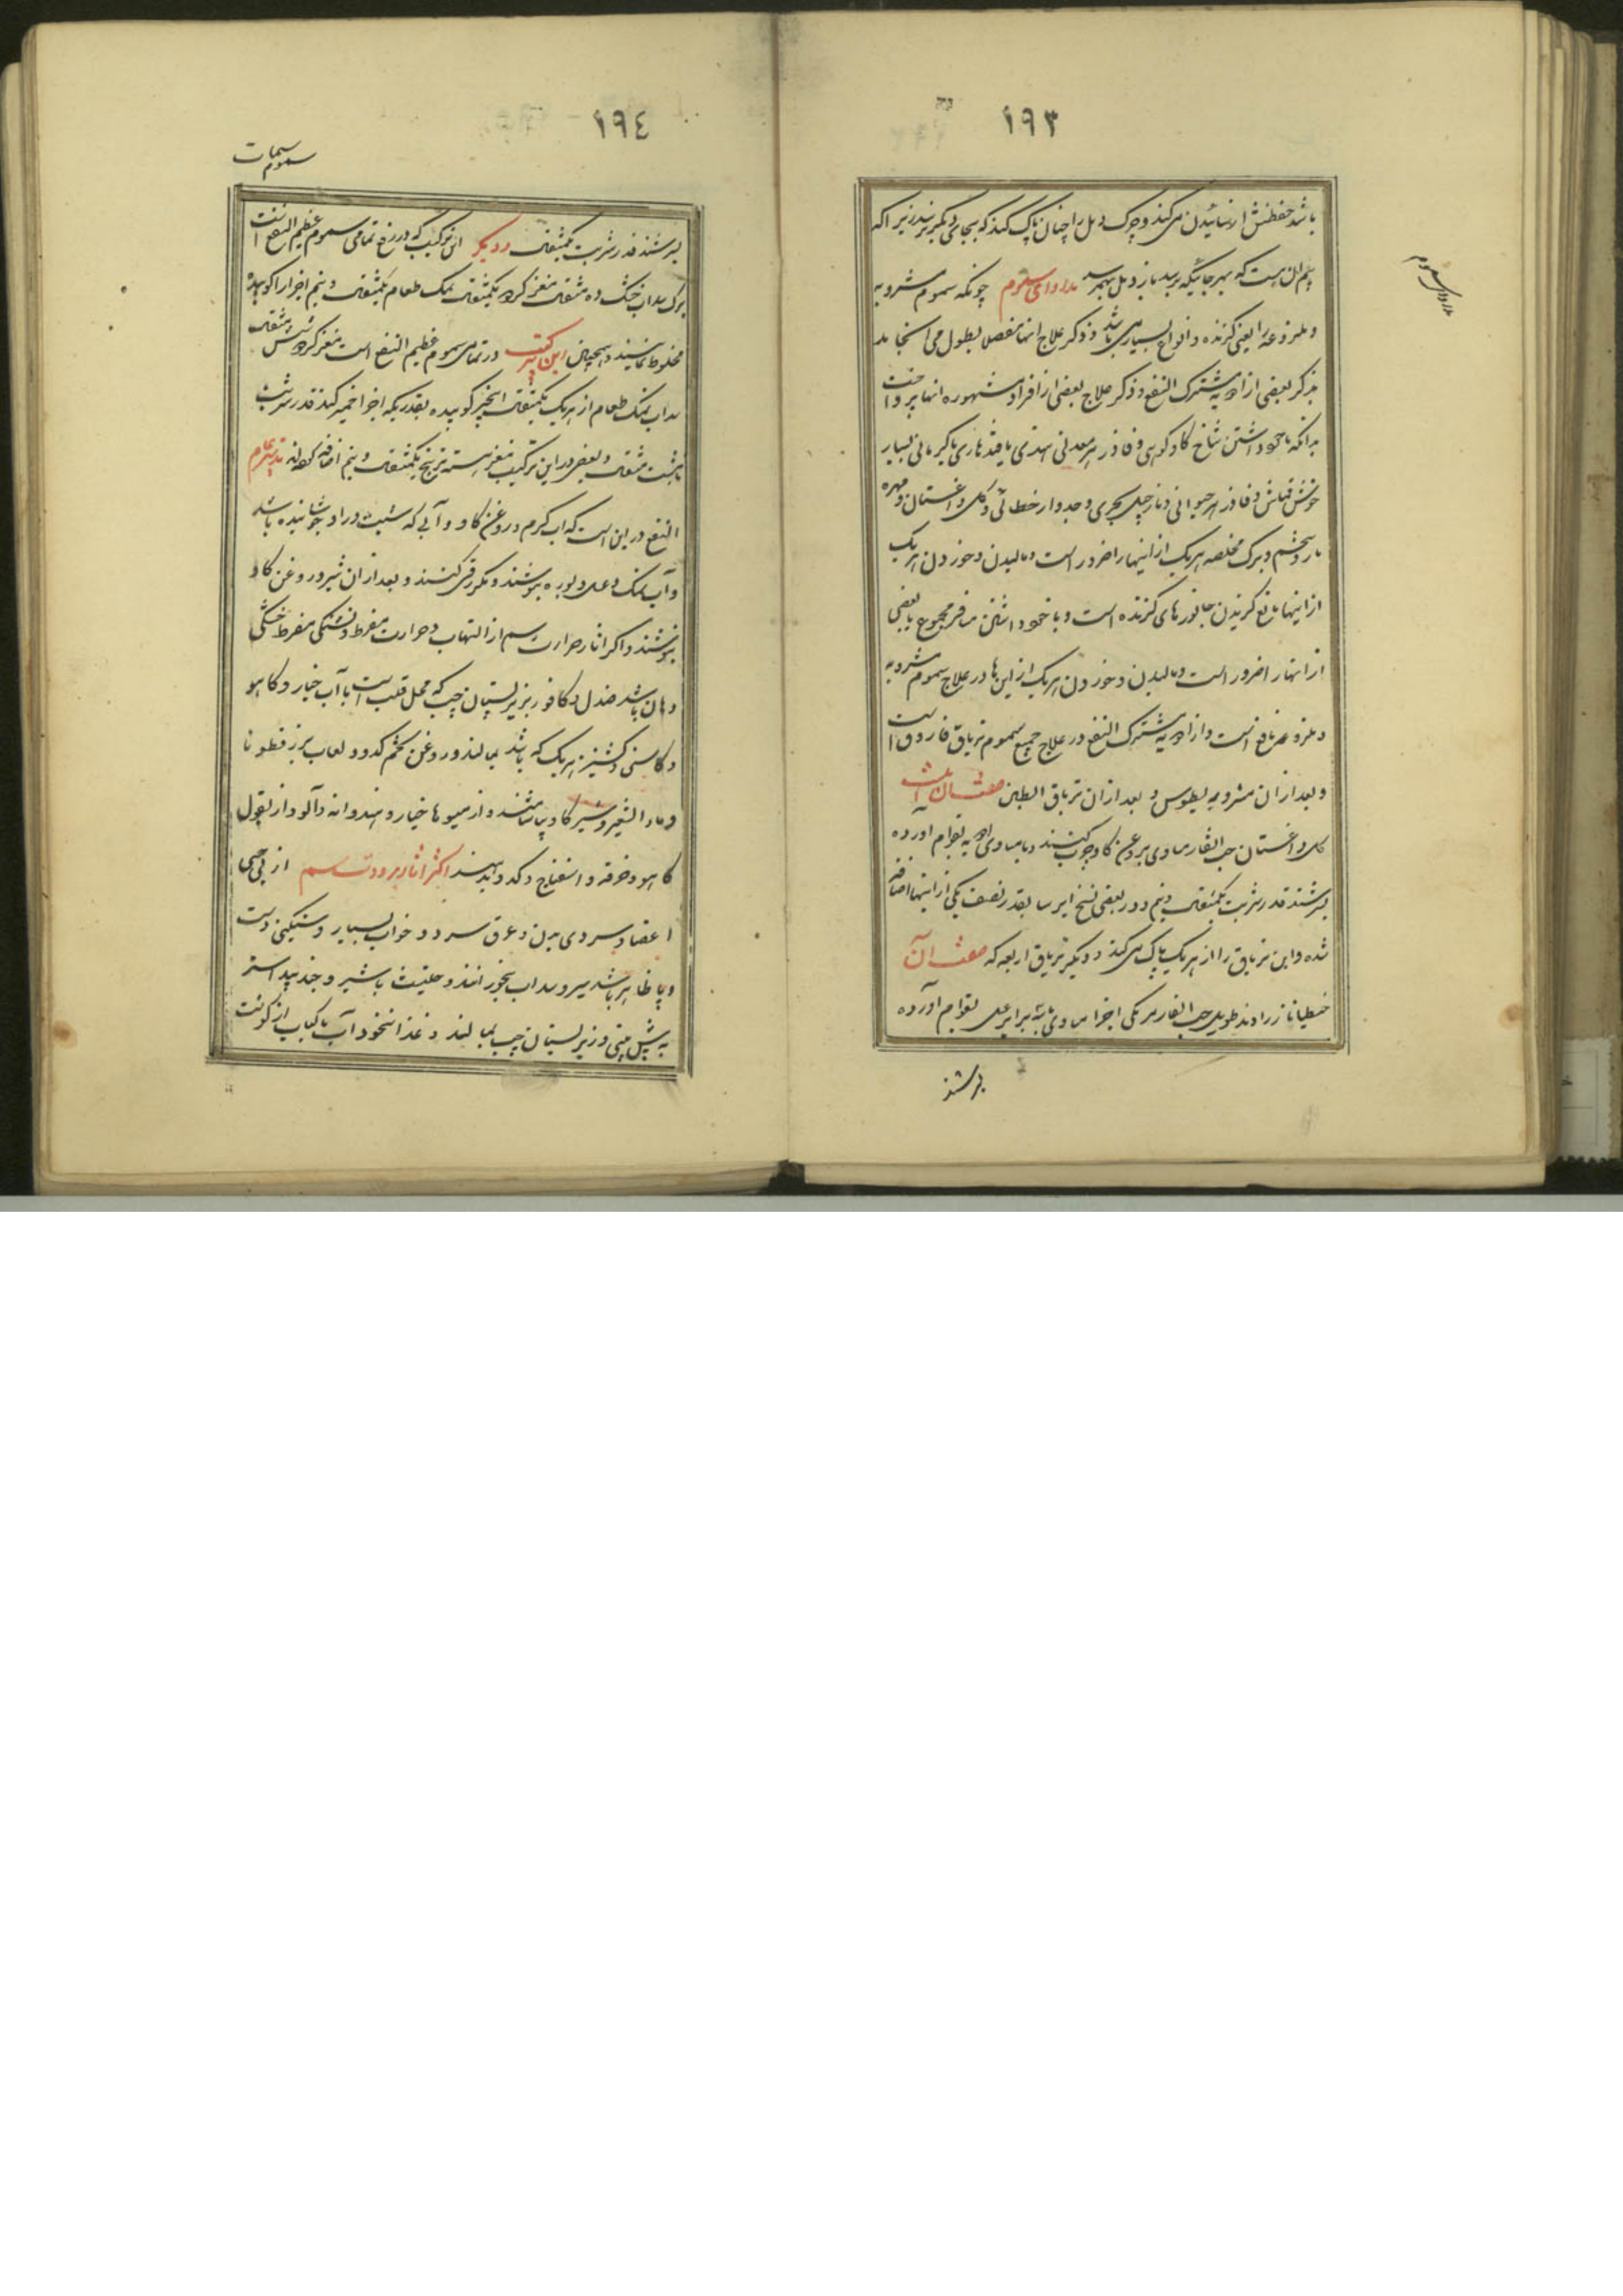 ١٩٣
باشد حفظش از سائیدن می‌کند و چرک دمل را چنان پاک کند که بجای دیگر نرسد زیرا که
بیم آن هست که بهر جائیکه برسد باز دمل بهم رسد مداوای سموم چونکه سموم مشروبه
و ملدوغه یعنی گزنده و انواع بسیار می‌باشد و ذکر علاج انها مفصلا بطول می انجامد
بذکر بعضی از ادویه مشترک النفع و ذکر علاج بعضی از افراد مشهوره انها پرداخت
بدانکه با خود داشتن شاخ گاو کوهی و فادزهر معدنی
فادزهر حیوانی و نارجیل بحری و جدوار خطائی و گل داغستان و مهره
مار و برگ مخلصه هریک از اینها را ضرور است و مالیدن و خوردن هریک
از اینها مانع گزیدن جانورهای گزنده است و با خود داشتن مسافر مجموع یا بعضی
از اینها را ضرور است و مالیدن و خوردن هریک از این ها در علاج سموم مشروبه
و ملدوغه نافع است و از ادویه مشترک النفع در علاج جمیع سموم تریاق فاروق است
و بعد از ان مثرودیطوس و بعد از ان تریاق الطین صفت ان
گل داغستان حب الغار مساوی بروغن گاو چرب کنند و با مساوی ادویه بقوام اورده
بسرشند قدر شربت یکمثقال و نیم و در بعضی نسخ ایرسا بقدر نصف یکی از اینها اضافه
شده و این تریاق را از هریک پاک می‌کند و دیگر تریاق اربعه که صفت آن
جنطیانا زراوند طویل حب الغار مر مکی اجزا مساوی با سه برابر عسل بقوام آورده
بسرشند
مداوای سموم
١٩٤
سموم
بسرشند قدر شربت یکمثقال و دیگر این ترکیب که در رفع تمامی سموم عظیم النفع است
برگ سداب خشک ده مثقال مغز گردو یکمثقال نمک طعام یکمثقال و نیم اجزا را کوبیده
مخلوط نمایند و همچنان این ترکیب در تمامی سموم عظیم النفع است مغز گردو شش مثقال
سداب نمک طعام از هریک یکمثقال انجیر کوبیده بقدریکه اجزا خمیر کند قدر شربت
تا هشت مثقال و بعضی در این ترکیب مغز هسته ترنج یکمثقال و نیم اضافه کرده‌اند تدبیر عام
النفع در این است که اب گرم و روغن گاو و آبی که شبت در او جوشانیده باشند
و آب نمک و عسل و بوره بنوشند و مکرر قی کنند و بعد از ان شیر و روغن گاو
بنوشند و اگر اثار حرارت سم از التهاب و حرارت مفرط و تشنگی مفرط و خشکی
دهان باشد صندل و کافور بزیر پستان چپ که محل قلب است با آب خیار و کاهو
و کاسنی و گشنیز هریک که باشد بمالند و روغن تخم کدو و لعاب بزرقطونا
و ماء الشعیر و شیر گاو بیاشامند و از میوها خیار و هندوانه و آلو و از بقول
کاهو و خرفه و اسفناج و کدو بدهند اگر اثار برودت سم از بی‌حسی
اعضا و سردی بدن و عرق سرد و خواب بسیار و سنگینی دست
و پا ظاهر باشد سیر و سداب بخورانند و حلتیت با شیر و جندبیدستر
بمالند و غذا نخود آب با کباب از گوشت